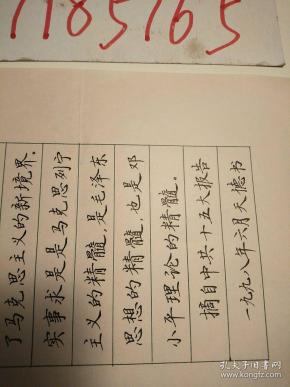 1185165
了马克思主义的新境界.
实事求是是马克思列宁
主义的精髓,是毛泽东
思想的精髓,也是邓
小平理论的精髓。
摘自中共十五大报告
一九九八年六月天德书
孔夫子旧书网